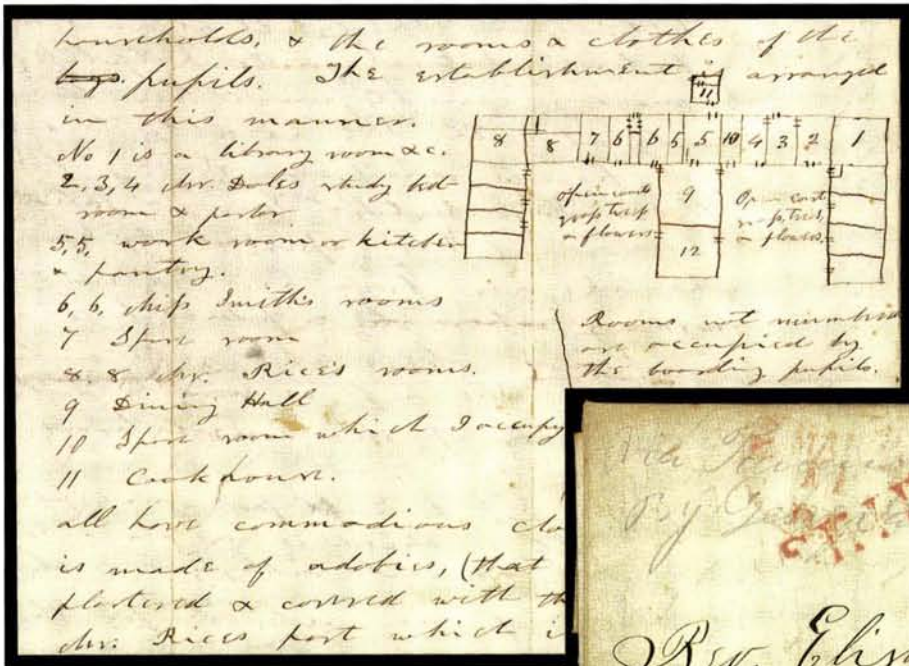 households, & the rooms & clothes of the
pupils. The establishment is arranged
in this manner.
No 1 is a library room &c.
2, 3, 4 Mr. Doles study bed
room & parlor
5, 5, work room or kitchen
& pantry.
6, 6, Miss Smith's rooms
7 Spare room
8, 8, Mr. Rice's rooms.
9 Dining Hall
10 Spare room which I occupy
11 Cook house.
all have commodious clo
is made of adobies, (that
plastered & covered with th
Mr. Rices part which i
11
8 8 7 6 6 5 5 10 4 3 2 1
open court
grass trees
& flowers
9
12
Open court
grass trees,
& flowers.
Rooms not numbered
are occupied by
the boarding pupils.
Via
By
Rev Eli